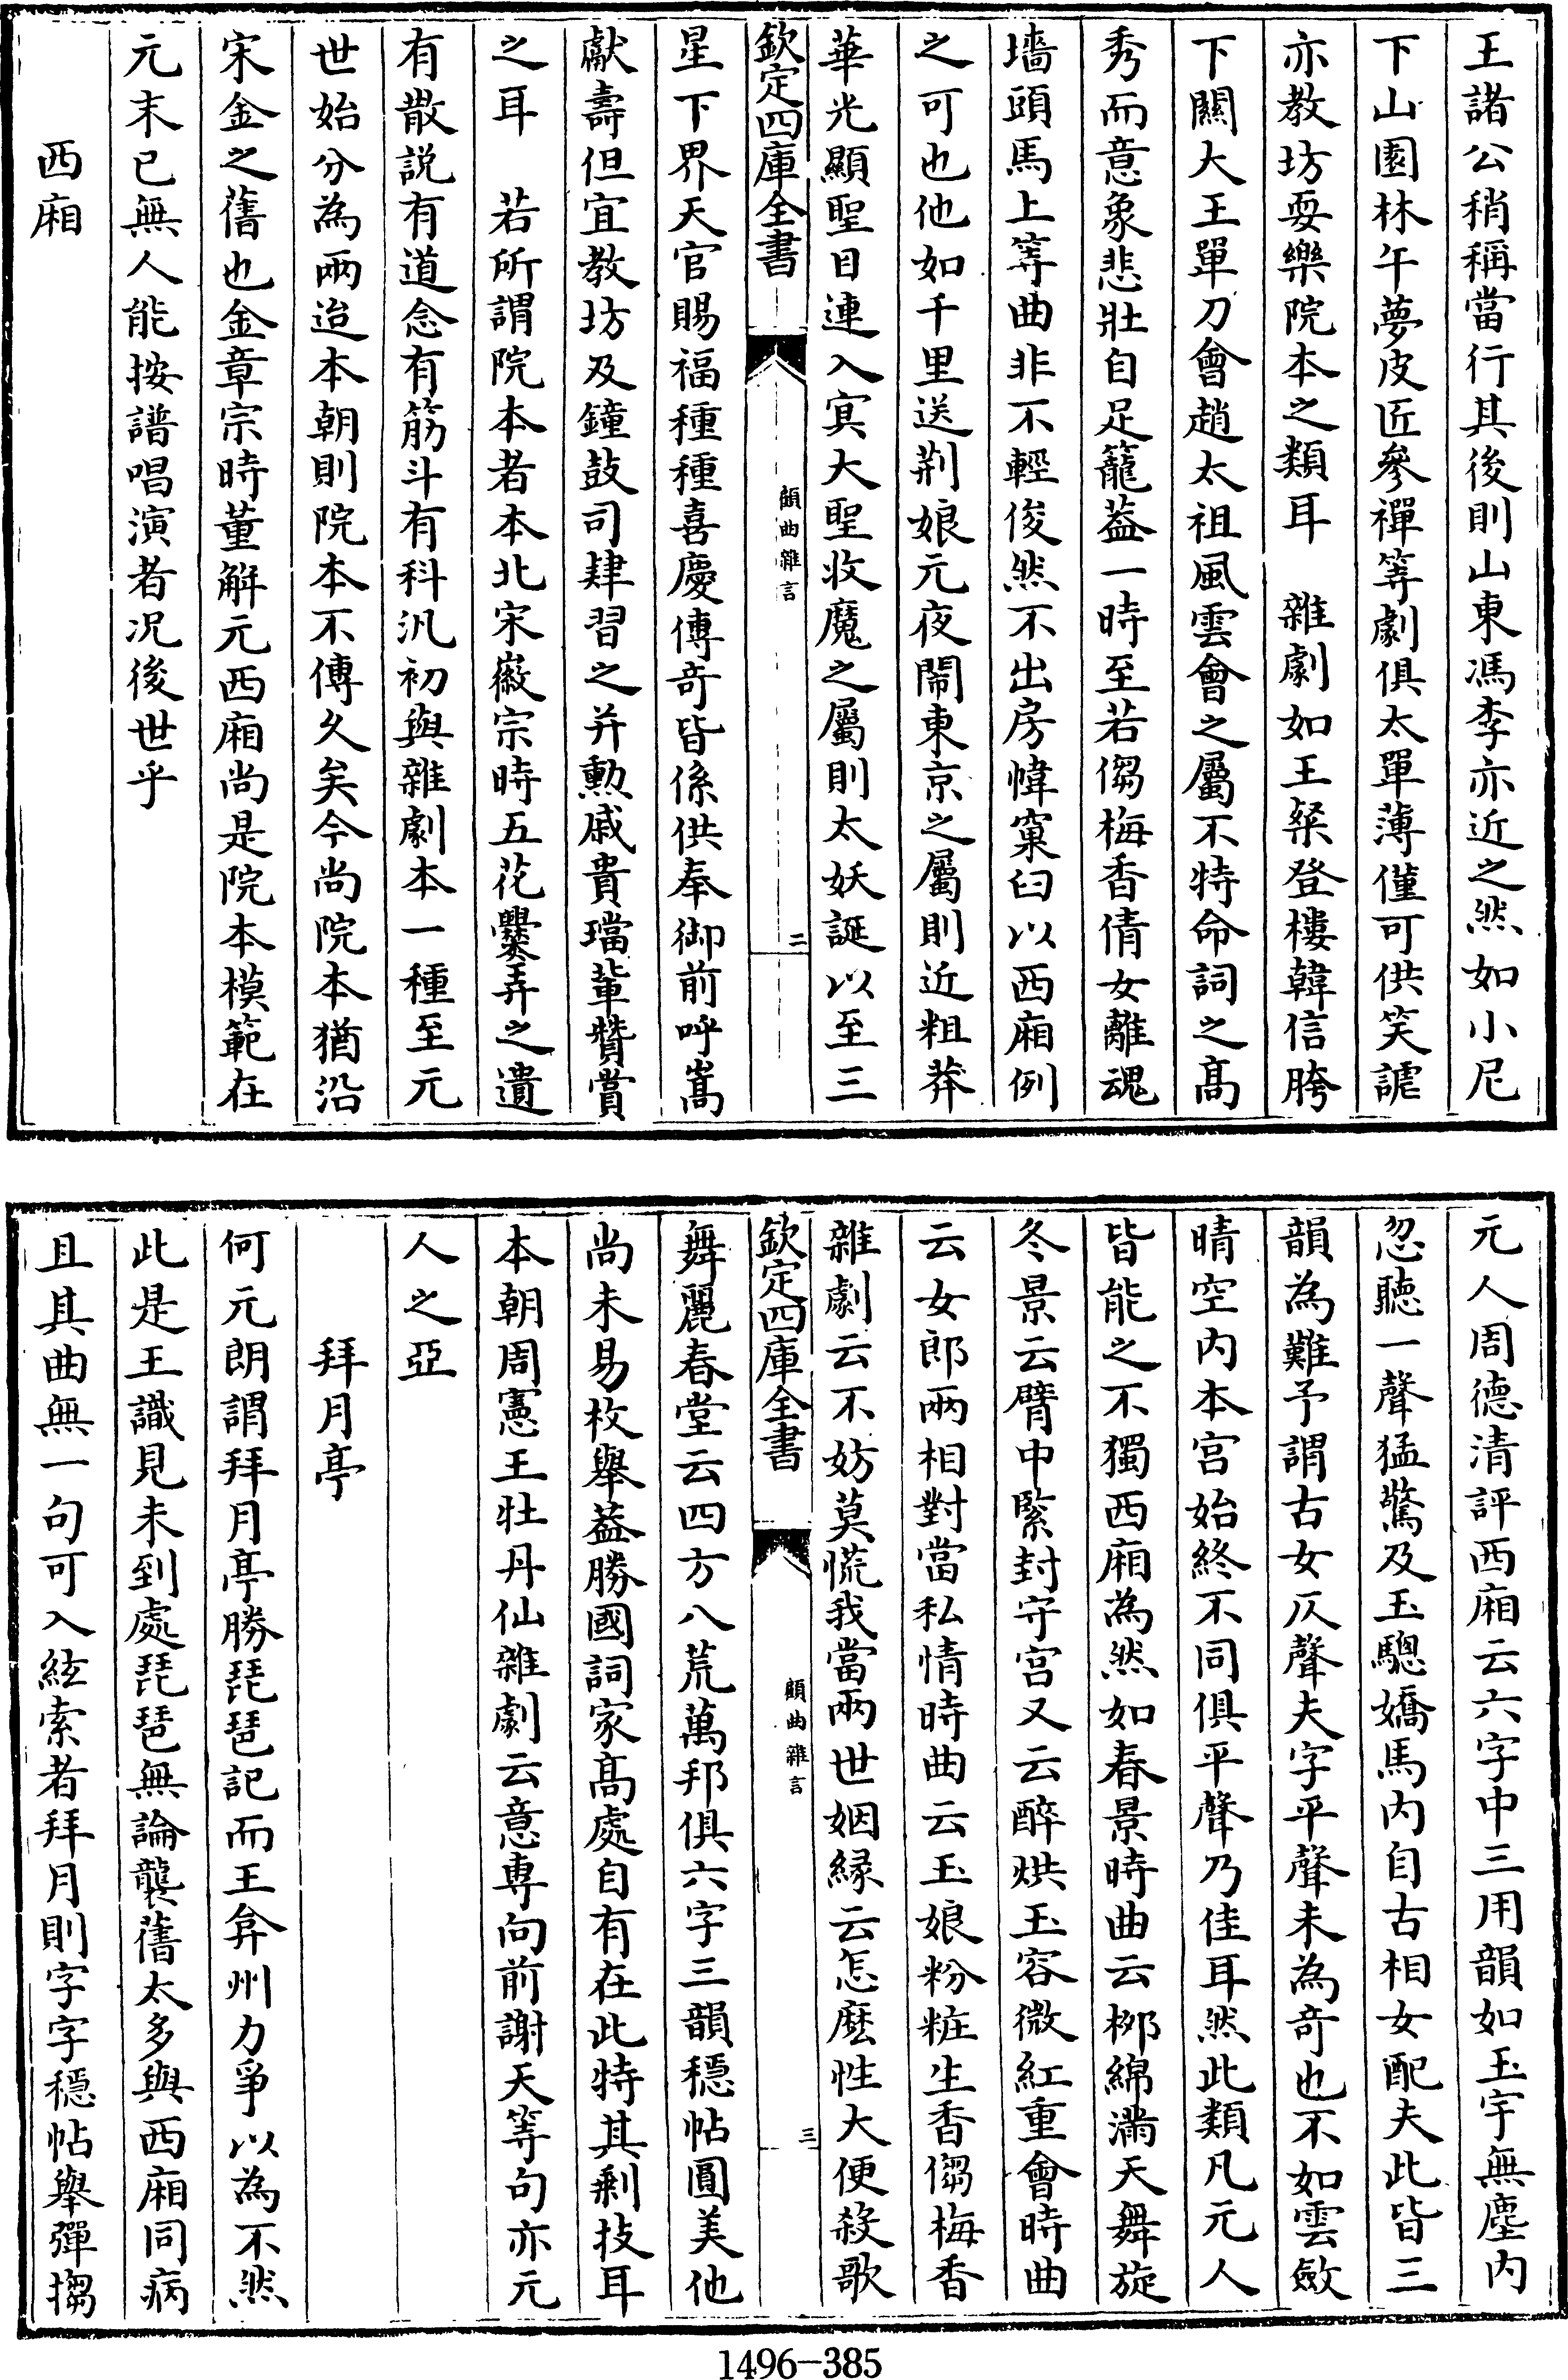 王諸公稍稱當行其後則山東馮李亦近之然如小尼
下山園林午夢皮匠參禪等劇俱太單薄僅可供笑謔
亦教坊耍樂院本之類耳　雜劇如王粲登樓韓信胯
下關大王單刀會趙太祖風雲會之屬不特命詞之髙
秀而意象悲壯自足籠葢一時至若㑳梅香倩女離魂
墻頭馬上等曲非不輕俊然不出房幃窠臼以西廂例
之可也他如千里送荆娘元夜鬧東京之屬則近粗莽
華光顯聖目連入㝠大聖收魔之屬則太妖誕以至三
欽定四庫全書
顧曲雜言
二
星下界天官賜福種種喜慶傳竒皆係供奉御前呼嵩
獻壽但宜教坊及鐘鼓司肄習之并勲戚貴璫軰贊賞
之耳　若所謂院本者本北宋徽宗時五花爨弄之遺
有散説有道念有筋斗有科汎初與雜劇本一種至元
世始分為兩迨本朝則院本不傳久矣今尚院本猶沿
宋金之舊也金章宗時董解元西廂尚是院本模範在
元末已無人能按譜唱演者况後世乎
西廂
元人周德清評西廂云六字中三用韻如玉宇無塵内
忽聽一聲猛驚及玉驄嬌馬内自古相女配夫此皆三
韻為難予謂古女仄聲夫字平聲未為竒也不如雲斂
晴空内本宫始終不同俱平聲乃佳耳然此類凡元人
皆能之不獨西廂為然如春景時曲云栁綿滿天舞旋
冬景云臂中緊封守宫又云醉烘玉容微紅重會時曲
云女郎兩相對當私情時曲云玉娘粉粧生香㑳梅香
雜劇云不妨莫慌我當兩世姻縁云怎麽性大便殺歌
欽定四庫全書
顧曲雜言
三
舞麗春堂云四方八荒萬邦俱六字三韻穩帖圓美他
尚未易枚舉葢勝國詞家髙處自有在此特其剩技耳
本朝周憲王牡丹仙雜劇云意専向前謝天等句亦元
人之亞
拜月亭
何元朗謂拜月亭勝琵琶記而王弇州力爭以為不然
此是王識見未到處琵琶無論襲舊太多與西廂同病
且其曲無一句可入絃索者拜月則字字穩帖舉彈搊
1496-385